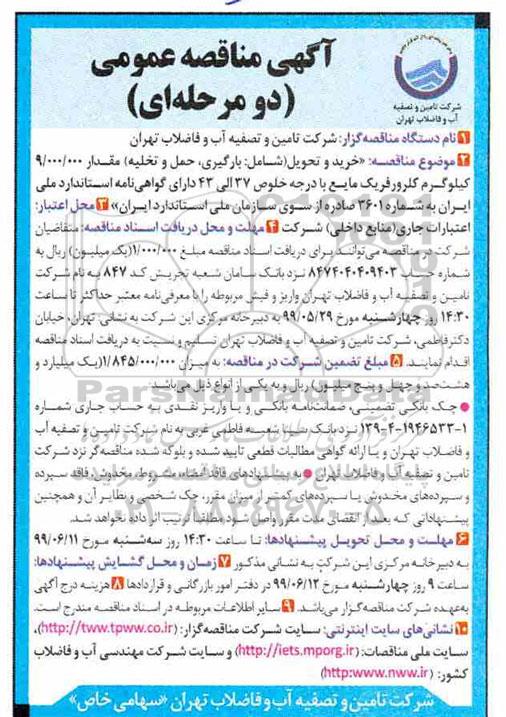 آگهی مناقصه عمومی
(دو مرحله‌ای)
شرکت تامین و تصفیه
آب و فاضلاب تهران
۱ نام دستگاه مناقصه‌گزار: شرکت تامین و تصفیه آب و فاضلاب تهران
۲ موضوع مناقصه: «خرید و تحویل (شامل: بارگیری، حمل و تخلیه) مقدار ۹/۰۰۰/۰۰۰
کیلوگرم کلرورفریک مایع با درجه خلوص ۳۷ الی ۴۳ دارای گواهی‌نامه استاندارد ملی
ایران به شماره ۳۶۰۱ صادره از سوی سازمان ملی استاندارد ایران» ۳ محل اعتبار:
اعتبارات جاری (منابع داخلی) شرکت ۴ مهلت و محل دریافت اسناد مناقصه: متقاضیان
شرکت در مناقصه می‌توانند برای دریافت اسناد مناقصه مبلغ ۱/۰۰۰/۰۰۰ (یک میلیون) ریال به
شماره حساب ۸۴۷۴۰۴۰۴۰۹۴۰۳ نزد بانک سامان شعبه تجریش کد ۸۴۷ به نام شرکت
تامین و تصفیه آب و فاضلاب تهران واریز و فیش مربوطه را با معرفی‌نامه معتبر حداکثر تا ساعت
۱۴:۳۰ روز چهارشنبه مورخ ۹۹/۰۵/۲۹ به دبیرخانه مرکزی این شرکت به نشانی: تهران، خیابان
دکتر فاطمی، شرکت تامین و تصفیه آب و فاضلاب تهران تسلیم و نسبت به دریافت اسناد مناقصه
اقدام نمایند. ۵ مبلغ تضمین شرکت در مناقصه: به میزان ۱/۸۴۵/۰۰۰/۰۰۰ (یک میلیارد و
هشتصد و چهل و پنج میلیون) ریال و به یکی از انواع ذیل می‌باشد:
● چک بانکی تضمینی، ضمانت‌نامه بانکی و یا واریز نقدی به حساب جاری شماره
۱۳۹-۴-۱۹۴۶۵۳۳-۱ نزد بانک سینا شعبه فاطمی غربی به نام شرکت تامین و تصفیه آب
و فاضلاب تهران و یا ارائه گواهی مطالبات قطعی تایید شده و بلوکه شده مناقصه‌گر نزد شرکت
تامین و تصفیه آب و فاضلاب تهران ● به پیشنهادهای فاقد امضاء، مشروط، مخدوش، فاقد سپرده
و سپرده‌های مخدوش یا سپرده‌های کمتر از میزان مقرر، چک شخصی و نظایر آن و همچنین
پیشنهاداتی که بعد از انقضای مدت مقرر واصل شود مطلقاً ترتیب اثر داده نخواهد شد.
۶ مهلت و محل تحویل پیشنهادها: تا ساعت ۱۴:۳۰ روز سه‌شنبه مورخ ۹۹/۰۶/۱۱
به دبیرخانه مرکزی این شرکت به نشانی مذکور ۷ زمان و محل گشایش پیشنهادها:
ساعت ۹ روز چهارشنبه مورخ ۹۹/۰۶/۱۲ در دفتر امور بازرگانی و قراردادها ۸ هزینه درج آگهی
به‌عهده شرکت مناقصه‌گزار می‌باشد. ۹ سایر اطلاعات مربوطه در اسناد مناقصه مندرج است.
۱۰ نشانی‌های سایت اینترنتی: سایت شرکت مناقصه‌گزار: (http://tww.tpww.co.ir)،
سایت ملی مناقصات: (http://iets.mporg.ir) و سایت شرکت مهندسی آب و فاضلاب
کشور: (http:www.nww.ir)
شرکت تامین و تصفیه آب و فاضلاب تهران «سهامی خاص»
ParsNamadData
۰۲۱-۸۸۳۴۹۶۷۰-۵